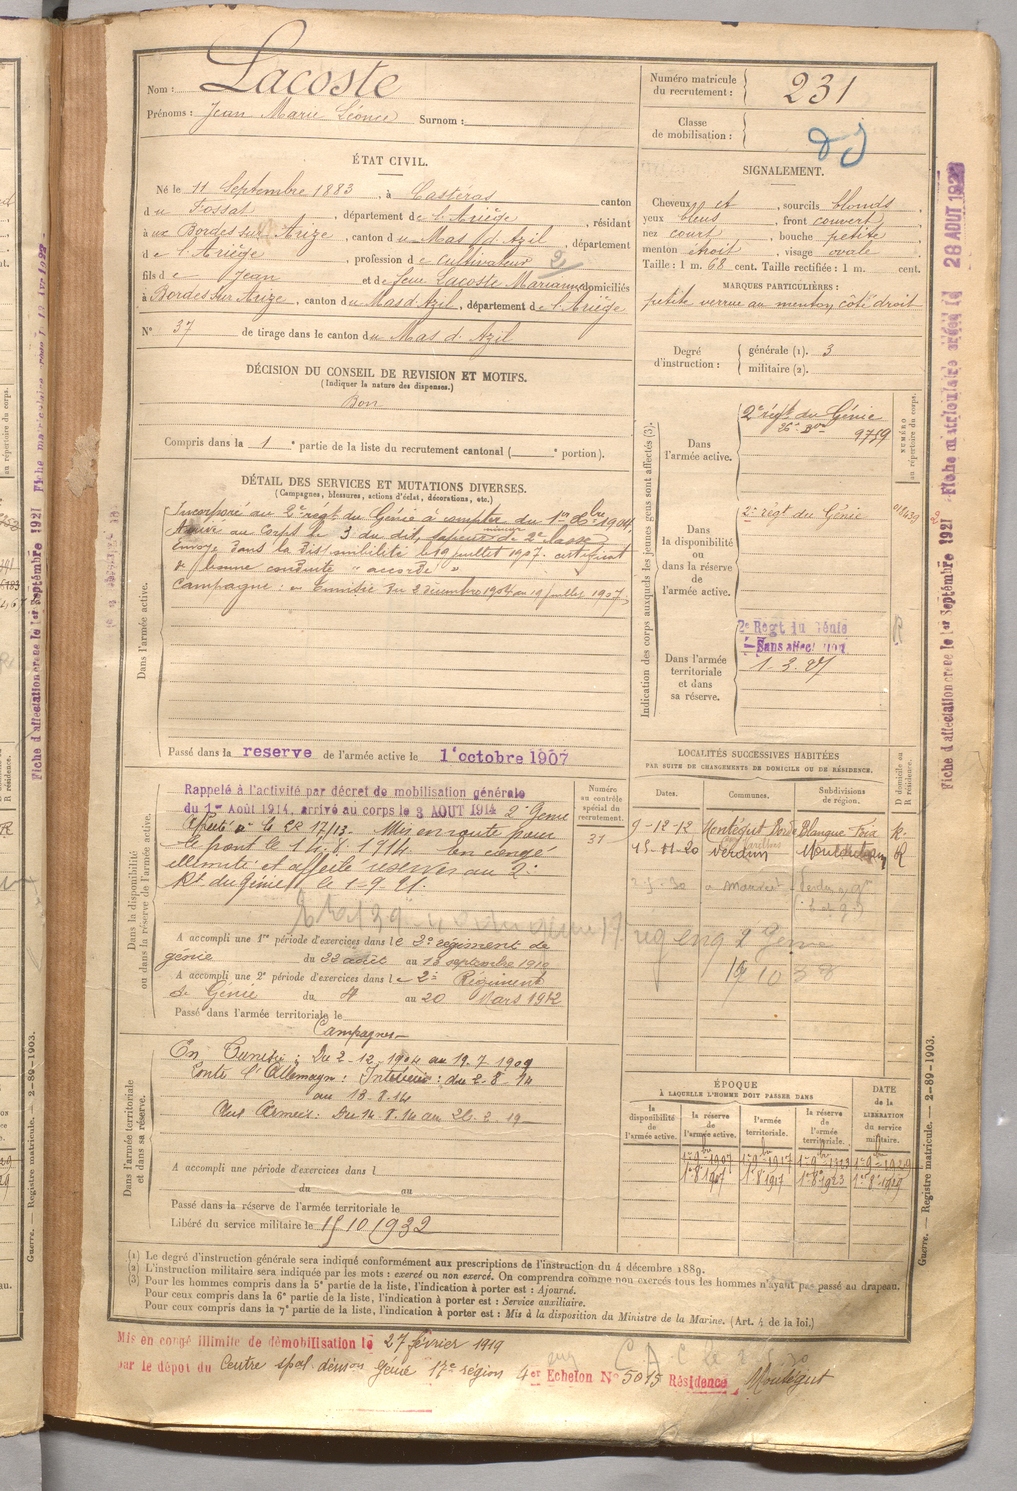 Nom : Lacoste
Prénoms : Jean Marie Léonce Surnom :
Numéro matricule du recrutement : 231
Classe de mobilisation :
ÉTAT CIVIL.
Né le 11 Septembre 1883, à Castéras canton
du Fossat, département de l'Ariège, résidant
à ux Bordes sur Arize, canton du Mas d'Azil, département
de l'Ariège, profession de Cultivateur 2
fils de Jean et de feue Lacoste Marianne domiciliés
à Bordes sur Arize, canton du Mas d'Azil, département de l'Ariège
N° 37 de tirage dans le canton du Mas d'Azil
SIGNALEMENT.
Cheveux et, sourcils blonds,
yeux bleus, front couvert,
nez court, bouche petite,
menton étroit, visage ovale.
Taille : 1 m. 68 cent. Taille rectifiée : 1 m. cent.
MARQUES PARTICULIÈRES :
petite verrue au menton, côté droit
Degré d'instruction : générale (1). 3
militaire (2).
DÉCISION DU CONSEIL DE REVISION ET MOTIFS.
(Indiquer la nature des dispenses.)
Bon
Compris dans la 1e partie de la liste du recrutement cantonal ( e portion).
DÉTAIL DES SERVICES ET MUTATIONS DIVERSES.
(Campagnes, blessures, actions d'éclat, décorations, etc.)
Dans l'armée active.
Incorporé au 2e régt du Génie à compter du 1er 8bre 1904
Arrivé au Corps le 3 du dit, sapeur mineur de 2e classe
Envoyé dans la disponibilité le 19 juillet 1907. certificat
de bonne conduite "accordé"
Campagne : en Tunisie du 2 décembre 1904 au 19 juillet 1907
Passé dans la reserve de l'armée active le 1er octobre 1907
Indication des corps auxquels les jeunes gens sont affectés (3).
NUMÉRO au répertoire du corps.
Dans l'armée active.
2e régt du Génie
9759
Dans la disponibilité ou dans la réserve de l'armée active.
2e régt du Génie
Dans l'armée territoriale et dans sa réserve.
2e Régt du Génie
Sans affect
Dans la disponibilité ou dans la réserve de l'armée active.
Numéro au contrôle spécial du recrutement.
31
Rappelé à l'activité par décret de mobilisation générale
du 1er Août 1914, arrivé au corps le 3 AOUT 1914 2e Génie
Mis en route pour
le front le 14.8.1914. En congé
illimité et affecté réserves au 2e
Rt du Génie le 1-9-21.
A accompli une 1re période d'exercices dans le 2e régiment de
génie du 22 août au 13 septembre 1910
A accompli une 2e période d'exercices dans le 2e Régiment
de Génie du 4 au 20 Mars 1912
Passé dans l'armée territoriale le
LOCALITÉS SUCCESSIVES HABITÉES
PAR SUITE DE CHANGEMENTS DE DOMICILE OU DE RÉSIDENCE.
Dates. Communes. Subdivisions de région. D domicile ou R résidence.
9-12-12 Montégut Foix R.
Verdun R
Dans l'armée territoriale et dans sa réserve.
Campagnes
En Tunisie : Du 2-12-1904 au 19.7.1909
Contre l'Allemagne : Intérieur : du 2-8-14
au 13-8-14
Aux Armées : Du 14.8.14 au 26.2.19
A accompli une période d'exercices dans l
du au
Passé dans la réserve de l'armée territoriale le
Libéré du service militaire le 15 10 1932
ÉPOQUE
À LAQUELLE L'HOMME DOIT PASSER DANS
la disponibilité de l'armée active. la réserve de l'armée active. l'armée territoriale. la réserve de l'armée territoriale. DATE de la LIBÉRATION du service militaire.
1er 8 1907 1er 8 1917 1er 8 1923 1er 8 1929
(1) Le degré d'instruction générale sera indiqué conformément aux prescriptions de l'instruction du 4 décembre 1889.
(2) L'instruction militaire sera indiquée par les mots : exercé ou non exercé. On comprendra comme non exercés tous les hommes n'ayant pas passé au drapeau.
(3) Pour les hommes compris dans la 5e partie de la liste, l'indication à porter est : Ajourné.
Pour ceux compris dans la 6e partie de la liste, l'indication à porter est : Service auxiliaire.
Pour ceux compris dans la 7e partie de la liste, l'indication à porter est : Mis à la disposition du Ministre de la Marine. (Art. 4 de la loi.)
Mis en congé illimité de démobilisation le 27 février 1919
par le dépôt du Centre spal démon Génie 17e région 4er Echelon N° 5015 Résidence Montégut
Fiche d'affectation créée le 1er Septembre 1921
Guerre. — Registre matricule. — 2-89-1903.